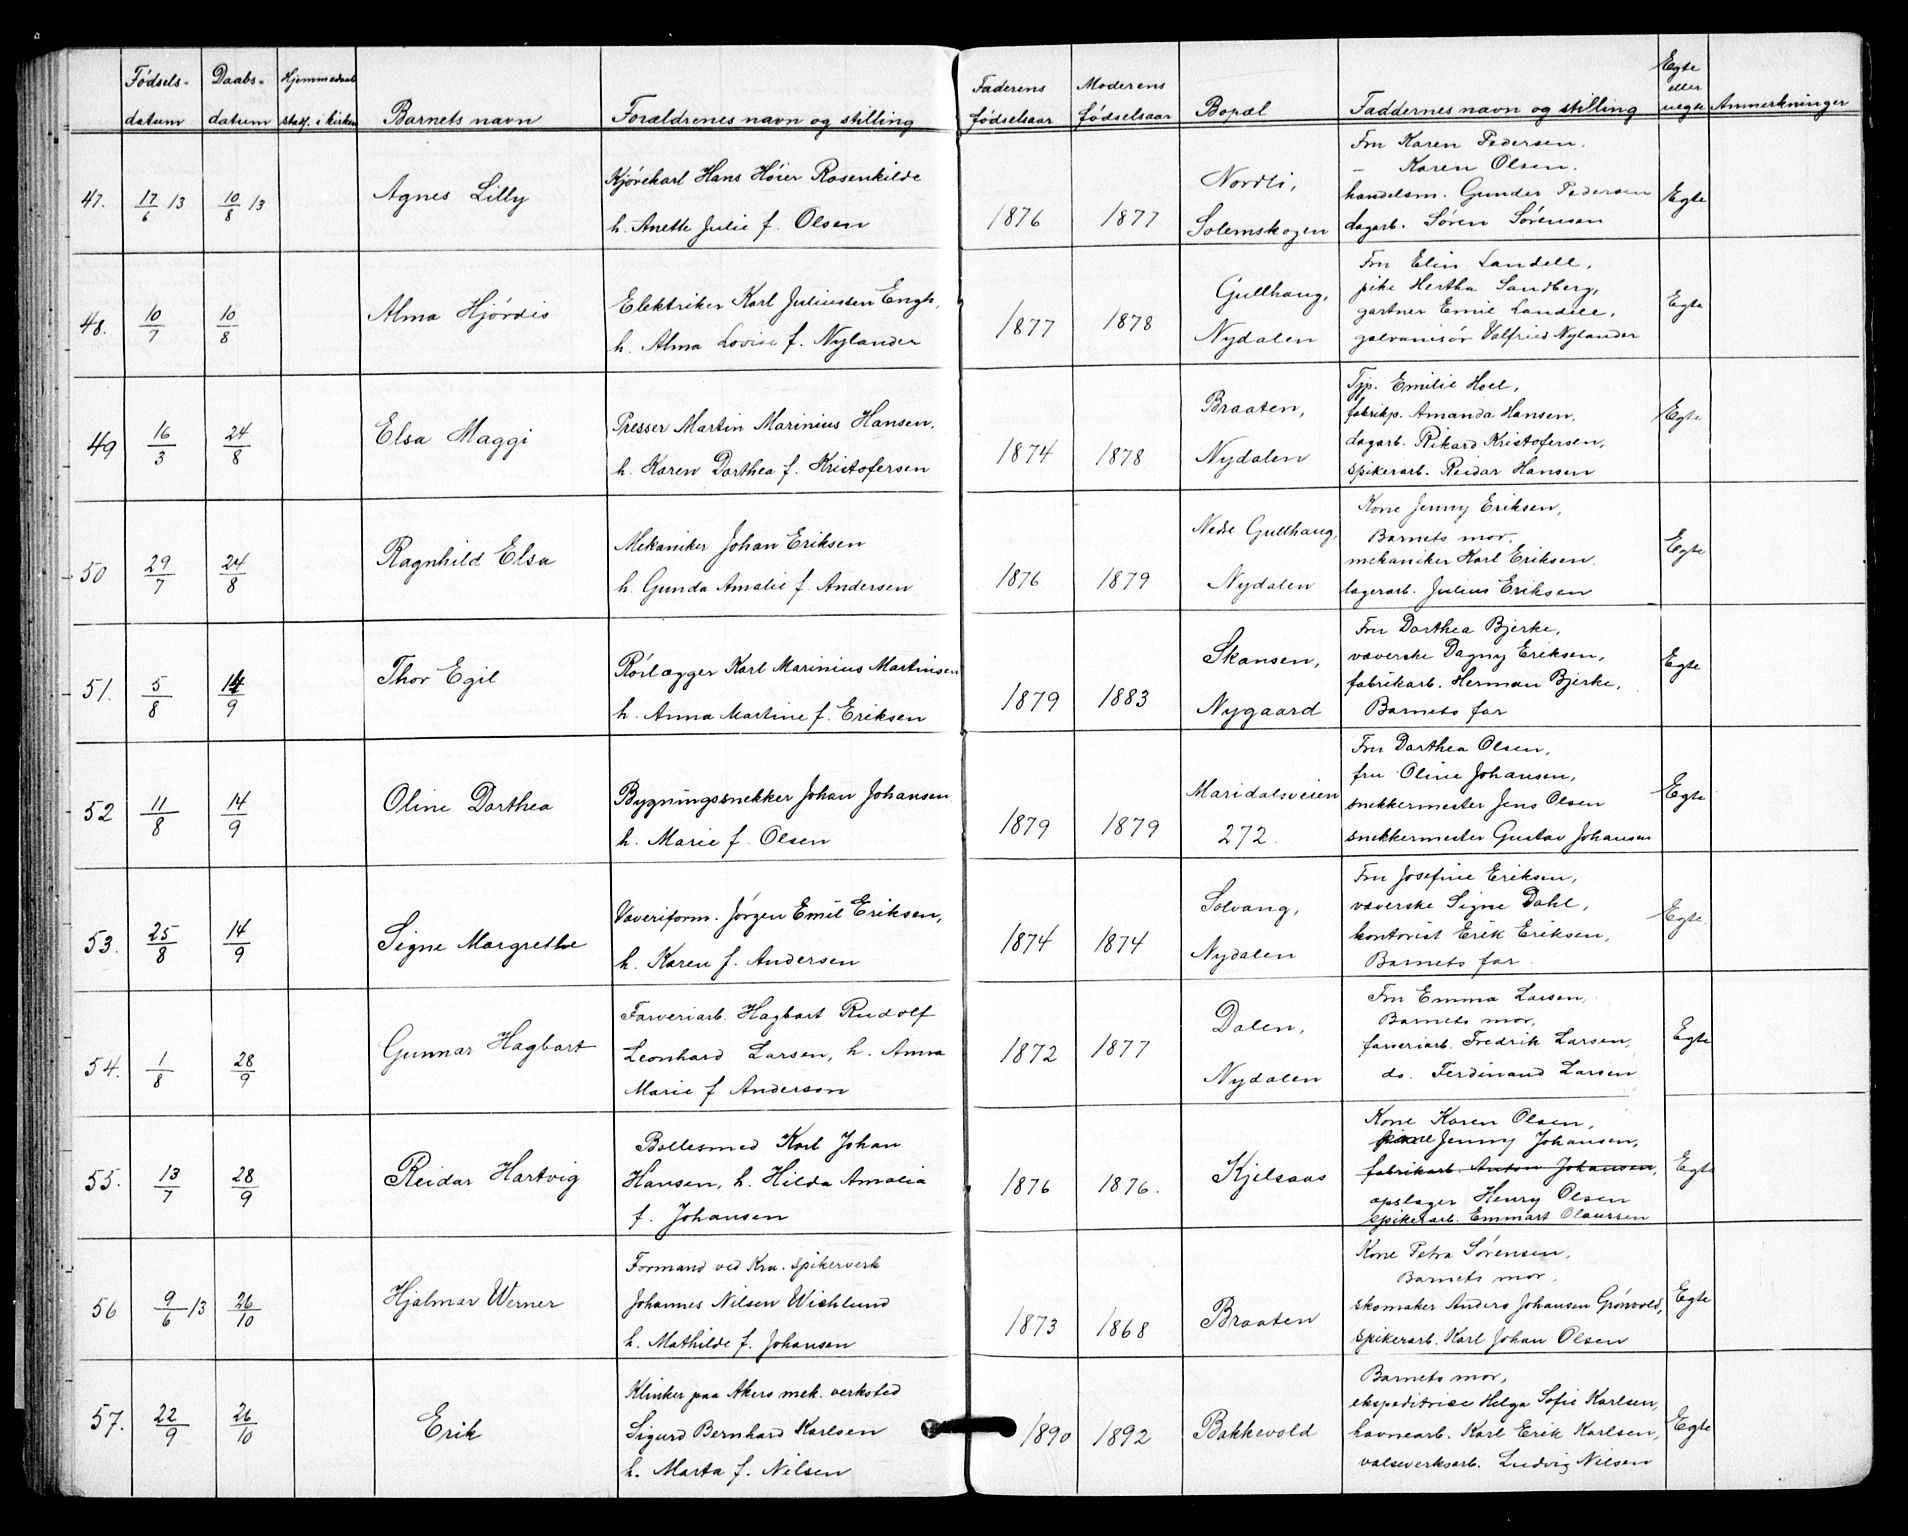 Fødsels-datum | Daabs-datum | Hjemmedaab stadf. i kirken | Barnets navn | Forældrenes navn og stilling | Faderens fødselsaar | Moderens fødselsaar | Bopæl | Faddernes navn og stilling | Egte eller uegte | Anmerkninger
47. 17/6 13 10/8 13 Agnes Lilly
Kjørekarl Hans Høier Rosenkilde
h. Anette Julie f. Olsen
1876 1877
Nordli,
Solemskogen
Fru Karen Pedersen.
– Karen Olsen.
handelsm. Gunder Pedersen
dagarb. Søren Sørensen
Egte
48. 10/7 10/8 Alma Hjørdis
Elektriker Karl Juliussen Engh,
h. Alma Lovise f. Nylander
1877 1878
Gullhaug,
Nydalen
Fru Elin Landell,
pike Hertha Sandberg,
gartner Emil Landell,
galvanisør Valfrid Nylander
Egte
49 16/3 24/8 Elsa Maggi
Presser Martin Marinius Hansen,
h. Karen Dorthea f. Kristofersen
1874 1878
Braaten,
Nydalen
Tjp. Emilie Hoel,
fabrikp. Amanda Hansen,
dagarb. Rikard Kristofersen,
spikerarb. Reidar Hansen
Egte
50 29/7 24/8 Ragnhild Elsa
Mekaniker Johan Eriksen
h. Gunda Amalie f. Andersen
1876 1879
Nedre Gullhaug,
Nydalen
Kone Jenny Eriksen,
Barnets mor,
mekaniker Karl Eriksen.
lagerarb. Julius Eriksen
Egte
51. 5/8 14/9 Thor Egil
Rørlægger Karl Marinius Martinsen
h. Anna Martine f. Eriksen
1879 1883
Skansen,
Nygaard
Fru Dorthea Bjerke,
væverske Dagny Eriksen,
fabrikarb. Herman Bjerke,
Barnets far
Egte
52 11/8 14/9 Oline Dorthea
Bygningssnekker Johan Johansen
h. Marie f. Olsen
1879 1879
Maridalsveien
272.
Fru Dorthea Olsen,
fru Oline Johansen,
snekkermester Jens Olsen
snekkermester Gustav Johansen
Egte
53. 25/8 14/9 Signe Margrethe
Væveriform. Jørgen Emil Eriksen,
h. Karen f. Andersen
1874 1874
Solvang,
Nydalen
Fru Josefine Eriksen,
væverske Signe Dahl,
kontorist Erik Eriksen,
Barnets far.
Egte.
54. 1/8 28/9 Gunnar Hagbart
Farveriarb. Hagbart Rudolf
Leonhard Larsen, h. Anna
Marie f Anderson
1872 1877
Dalen,
Nydalen
Fru Emma Larsen,
Barnets mor,
farveriarb. Fredrik Larsen,
do. Ferdinand Larsen
Egte
55. 13/7 28/9 Reidar Hartvig
Boltesmed Karl Johan
Hansen, h. Hilda Amalia
f. Johansen
1876 1876.
Kjelsaas
Kone Karen Olsen,
Jenny Johansen,
fabrikarb. Anton Johansen,
opslager Henry Olsen
spikerarb. Emmart Olaussen
Egte
56 9/6 13 26/10 Hjalmar Werner
Formand ved Kra. spikerverk
Johannes Nilsen Wichlund
h. Mathilde f. Johansen
1873 1868
Braaten
Kone Petra Sørensen,
Barnets mor.
skomaker Anders Johansen Grønvold,
spikerarb. Karl Johan Olsen
Egte
57. 22/9 26/10 Erik
Klinker paa Akers mek. verksted
Sigurd Bernhard Karlsen
h. Marta f. Nilsen
1890 1892
Bakkevold
Barnets mor,
ekspeditrise Helga Sofie Karlsen,
havnearb. Karl Erik Karlsen,
valseverksarb. Ludvig Nilsen
Egte